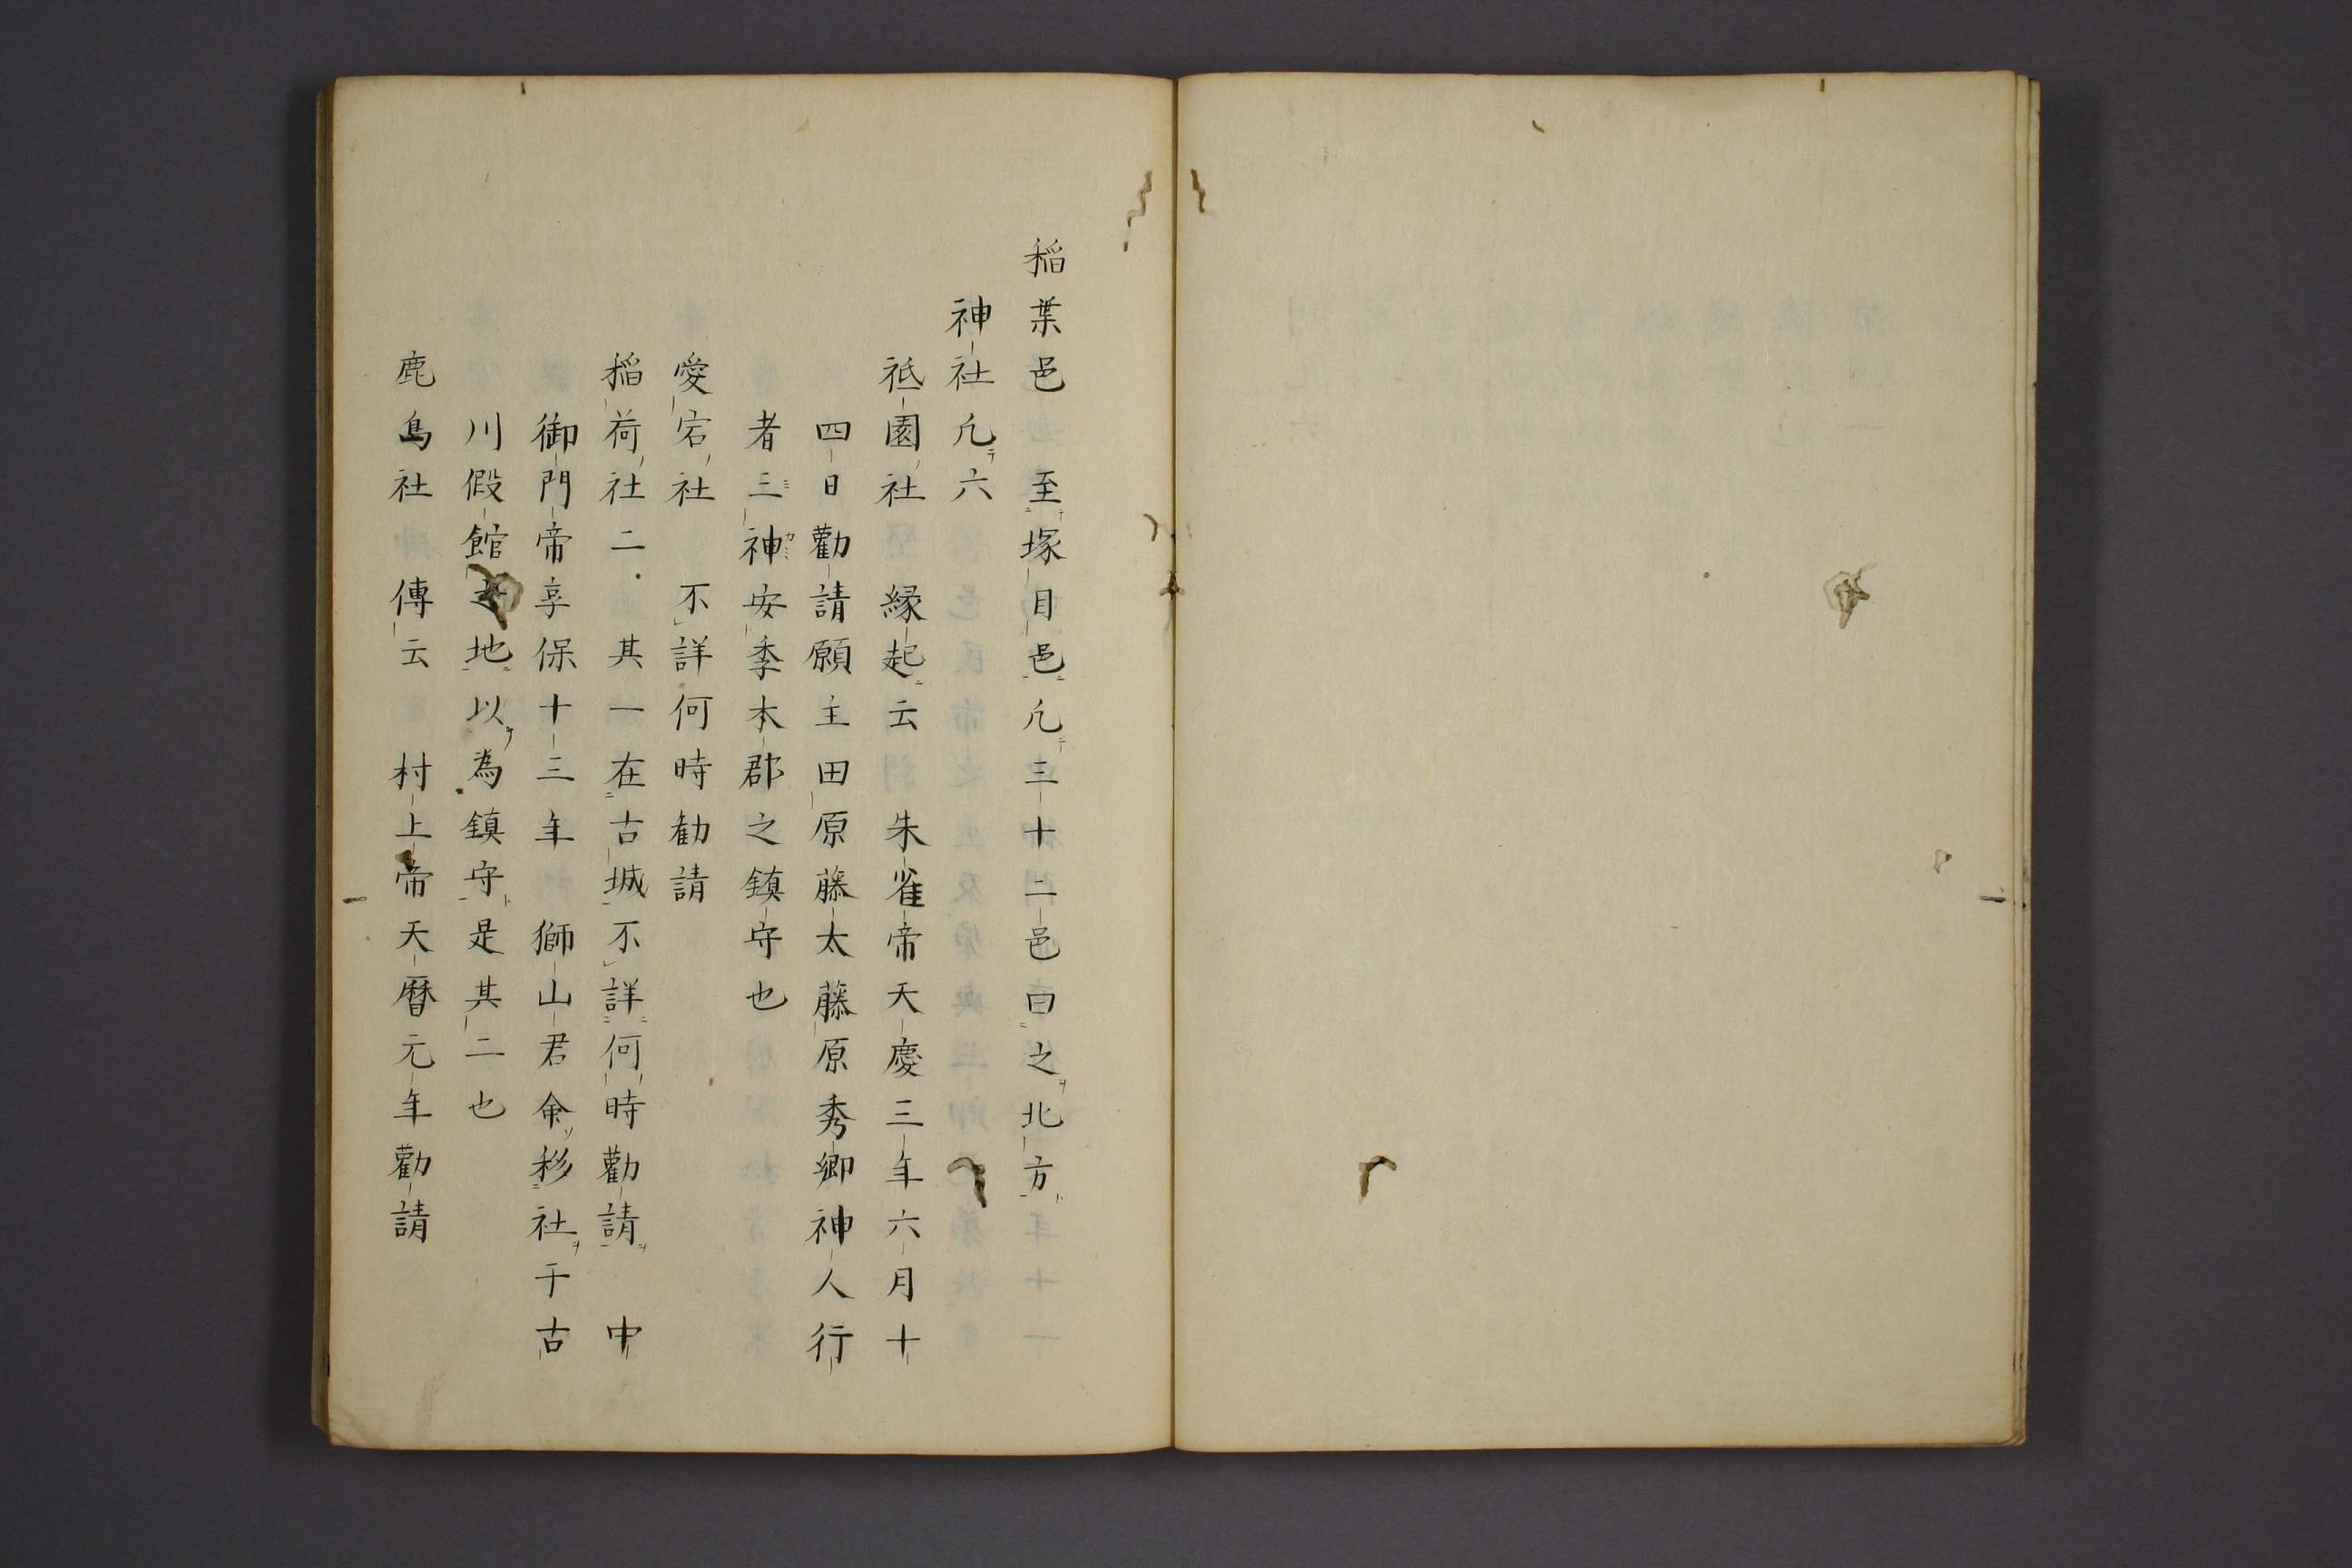 稲葉邑　至塚目邑凢三十二邑曰之北方
神社凢六
祗園社　縁起云　朱雀帝天慶三年六月十
四日勸請願主田原藤太藤原秀郷神人行
者三神安季本郡之鎮守也
愛宕社　不詳何時勧請
稲荷社二　其一在古城不詳何時勸請　中
御門帝享保十三年　獅山君命移社于古
川假館之地以為鎮守是其二也
鹿島社　傳云　村上帝天暦元年勸請